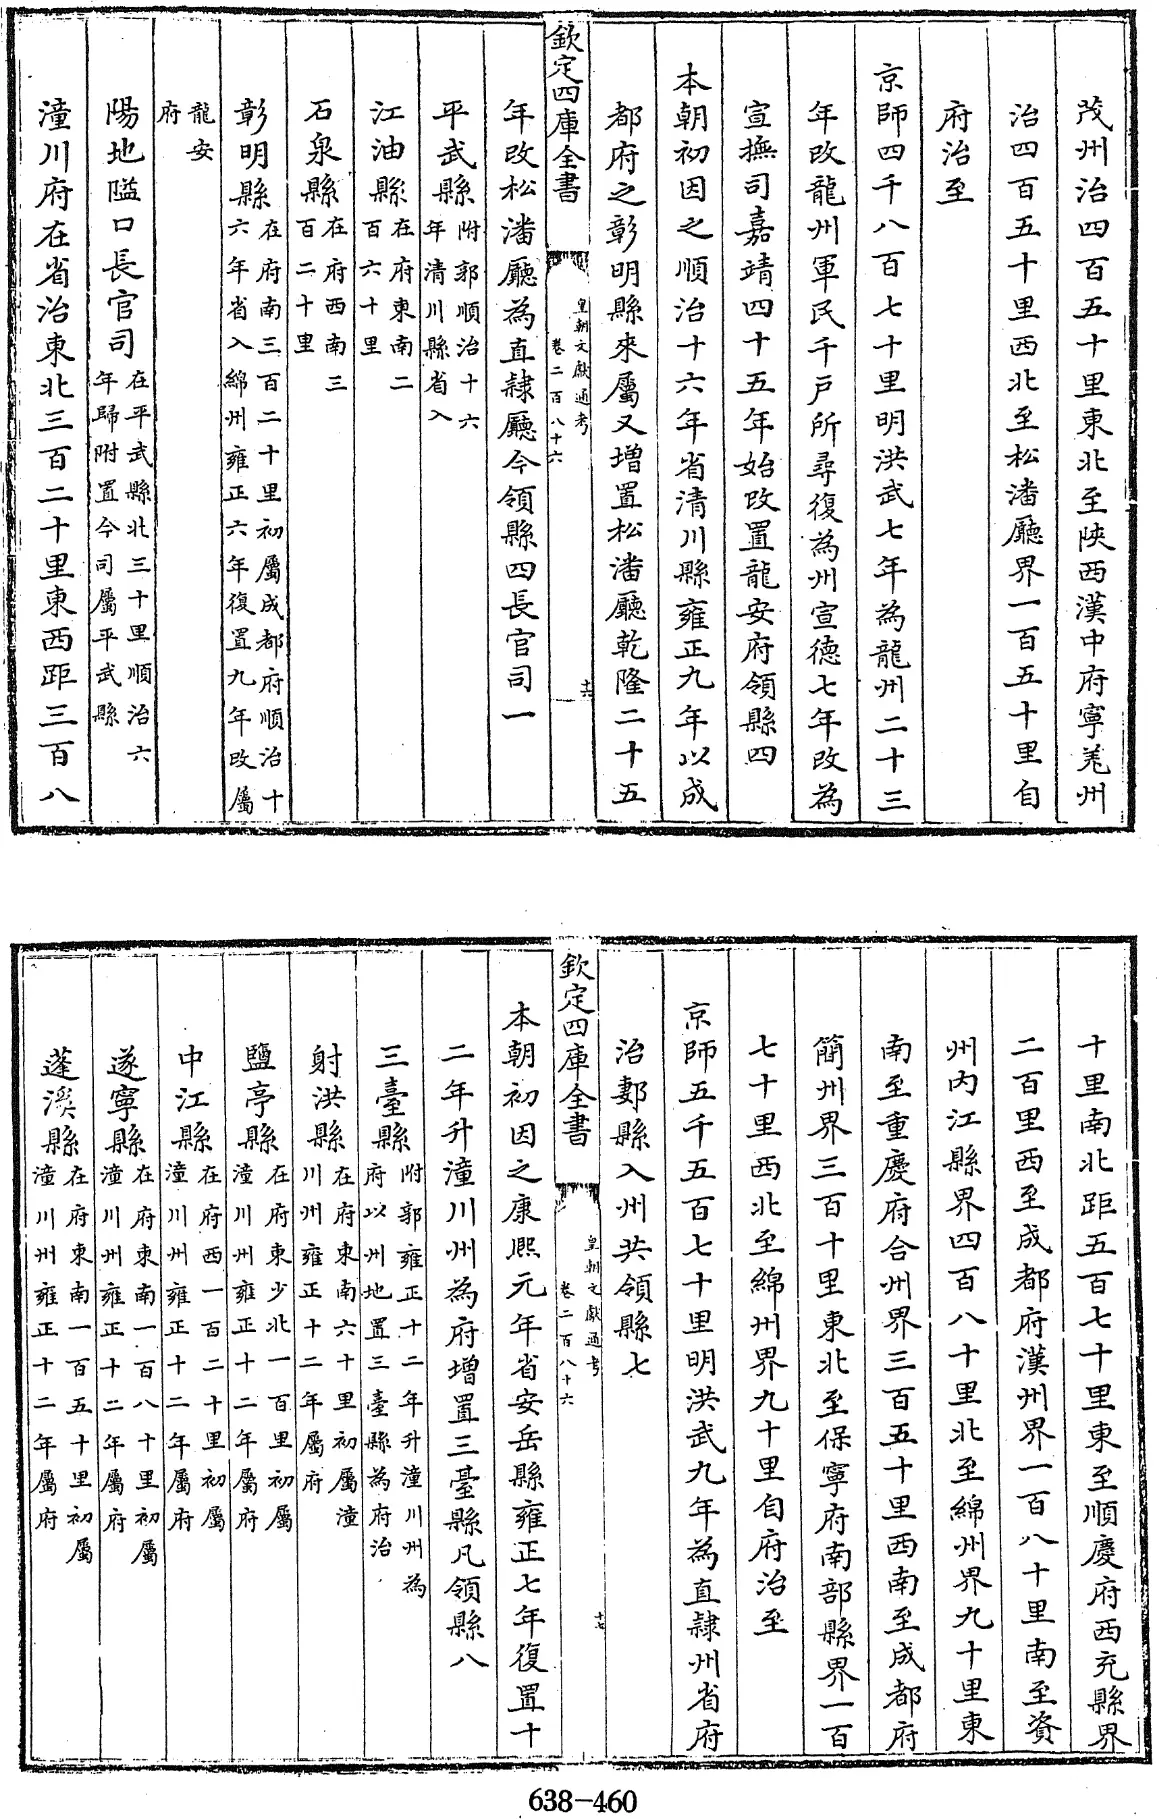 茂州治四百五十里東北至陝西漢中府寧羌州
治四百五十里西北至松潘廳界一百五十里自
府治至
京師四千八百七十里明洪武七年為龍州二十三
年改龍州軍民千戶所尋復為州宣德七年改為
宣撫司嘉靖四十五年始改置龍安府領縣四
本朝初因之順治十六年省清川縣雍正九年以成
都府之彰明縣來屬又增置松潘廳乾隆二十五
欽定四庫全書
皇朝文獻通考
卷二百八十六
十六
年改松潘廳為直隸廳今領縣四長官司一
平武縣
附郭順治十六
年清川縣省入
江油縣
在府東南二
百六十里
石泉縣
在府西南三
百二十里
彰明縣
在府南三百二十里初屬成都府順治十
六年省入綿州雍正六年復置九年改屬
龍安
府
陽地隘口長官司
在平武縣北三十里順治六
年歸附置今司屬平武縣
潼川府在省治東北三百二十里東西距三百八
十里南北距五百七十里東至順慶府西充縣界
二百里西至成都府漢州界一百八十里南至資
州內江縣界四百八十里北至綿州界九十里東
南至重慶府合州界三百五十里西南至成都府
簡州界三百十里東北至保寧府南部縣界一百
七十里西北至綿州界九十里自府治至
京師五千五百七十里明洪武九年為直隸州省府
治郪縣入州共領縣七
欽定四庫全書
皇朝文獻通考
卷二百八十六
十七
本朝初因之康熙元年省安岳縣雍正七年復置十
二年升潼川州為府增置三臺縣凡領縣八
三臺縣
附郭雍正十二年升潼川州為
府以州地置三臺縣為府治
射洪縣
在府東南六十里初屬潼
川州雍正十二年屬府
鹽亭縣
在府東少北一百里初屬
潼川州雍正十二年屬府
中江縣
在府西一百二十里初屬
潼川州雍正十二年屬府
遂寧縣
在府東南一百八十里初屬
潼川州雍正十二年屬府
蓬溪縣
在府東南一百五十里初屬
潼川州雍正十二年屬府
638-460